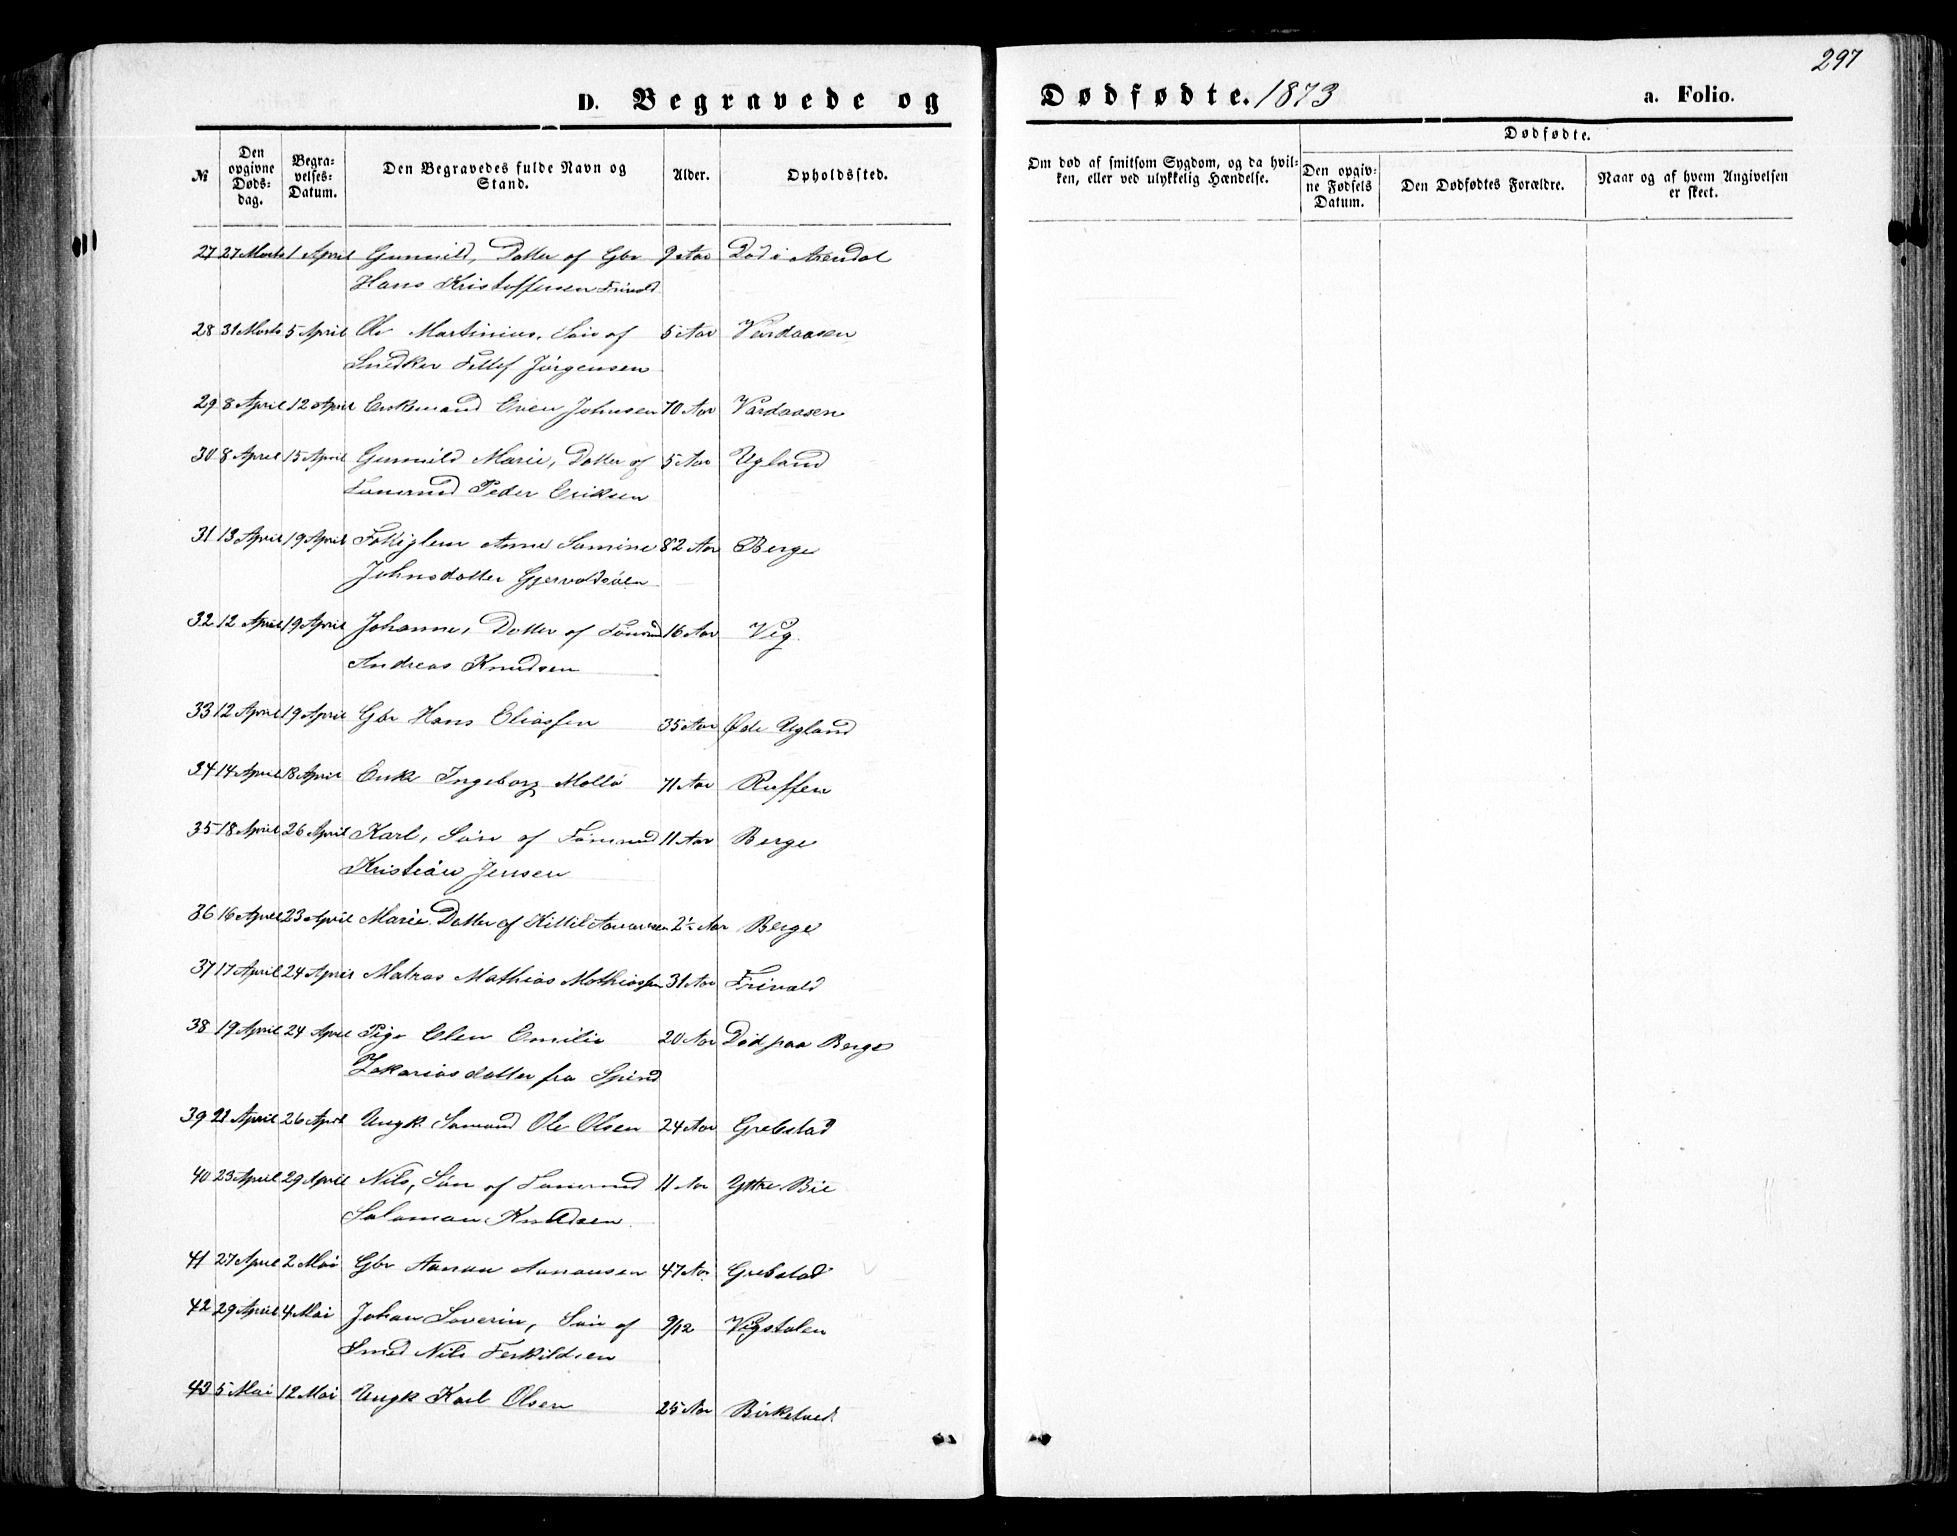 297
D. Begravede og Dødfødte. 1873 a. Folio.
№
Den opgivne Døds-dag.
Begra-velses-Datum.
Den Begravedes fulde Navn og Stand.
Alder.
Opholdssted.
Om død af smitsom Sygdom, og da hvil-ken, eller ved ulykkelig Hændelse.
Dødfødte.
Den opgiv-ne Fødsels Datum.
Den Dødfødtes Forældre.
Naar og af hvem Angivelsen er skeet.
27 27 Marts 1 April Gunnild, Datter af Gbr 9 Aar Død i Arendal
Hans Kristoffersen Frivold
28 31 Marts 5 April Ole Martinius, Søn af 5 Aar Vardaasen
Snedker Tellef Jörgensen
29 8 April 12 April Enkemand Even Johnsen 70 Aar Vardaasen
30 8 April 15 April Gunnild Marie, Datter af 5 Aar Ugland
Sømand Peder Eriksen
31 13 April 19 April Anne Samine 82 Aar Berge
Johnsdatter
32 12 April 19 April Johanne, Datter af Sömand 16 Aar Vig.
Andreas Knudsen
33 12 April 19 April Gbr Hans Eliassen 35 Aar Øde Ugland
34 14 April 18 April Enke Ingeborg Mollö 71 Aar Roffen
35 18 April 26 April Karl, Søn af Sömand 11 Aar Berge
Kristian Jensen
36 16 April 23 April Marie Datter af Kittil Aanansen 2½ Aar Berge
37 17 April 24 April Matros Mathias Mathiassen 31 Aar Frivold
38 19 April 24 April Pige Elen Emilie 20 Aar Död paa Berge
Zakariasdatter fra Spind
39 21 April 26 April Ungk. Sömand Ole Olsen 24 Aar Grebstad
40 23 April 29 April Nils, Sön af Sömand 11 Aar Ytre Bie
Salamon Knudsen
41 27 April 2 Mai Gbr Aanan Aanansen 47 Aar Grebstad
42 29 April 4 Mai Johan Severin, Søn af 9/12 Vigstølen
Smed Nils Terkildsen
43 5 Mai 12 Mai Ungk Karl Olsen 25 Aar Birketved